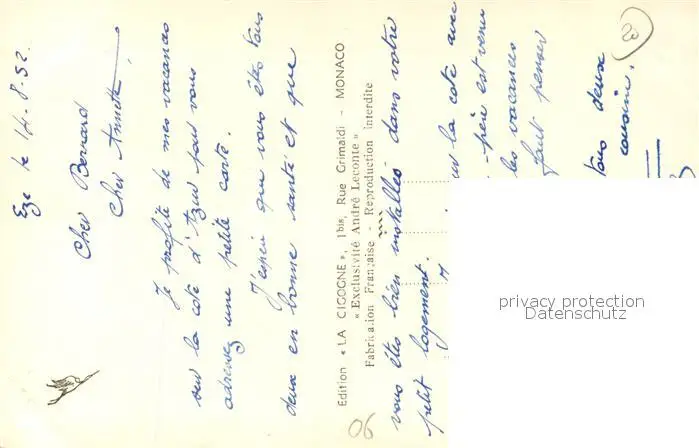 Eze le 14.8.52.
Cher Bernard
Cher Annette,
Je profite de mes vacances
sur la cote d'Azur pour vous
adresser une petite carte.
J'espère que vous êtes tous
deux en bonne santé et que
Edition « LA CIGOGNE », 1bis, Rue Grimaldi - MONACO
« Exclusivité André Leconte »
Fabrication Française - Reproduction Interdite
vous êtes bien installés dans votre
petit logement.
sur la cote avec
père est venu
les vacances
faut penser
tous deux
cousine.
06
privacy protection
Datenschutz